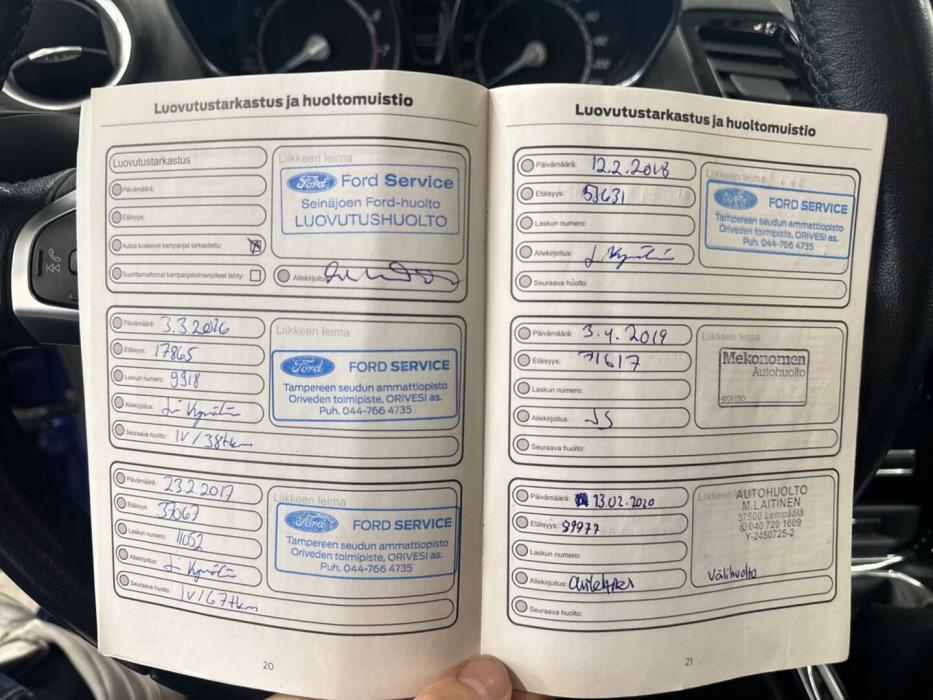 Luovutustarkastus ja huoltomuistio
Luovutustarkastus
Päivämäärä:
Etäisyys:
Autoa koskevat kampanjat tarkastettu:
Suorittamattomat kampanjatoimenpiteet tehty:
Liikkeen leima
Ford Ford Service
Seinäjoen Ford-huolto
LUOVUTUSHUOLTO
Allekirjoitus:
Päivämäärä: 3.3.2016
Etäisyys: 17865
Laskun numero: 9918
Allekirjoitus:
Seuraava huolto: 1V/38tkm
Liikkeen leima
Ford FORD SERVICE
Tampereen seudun ammattiopisto
Oriveden toimipiste, ORIVESI as.
Puh. 044-766 4735
Päivämäärä: 23.2.2017
Etäisyys: 37067
Laskun numero: 11052
Allekirjoitus:
Seuraava huolto: 1V/67tkm
Liikkeen leima
Ford FORD SERVICE
Tampereen seudun ammattiopisto
Oriveden toimipiste, ORIVESI as.
Puh. 044-766 4735
20
Luovutustarkastus ja huoltomuistio
Päivämäärä: 12.2.2018
Etäisyys: 53631
Laskun numero:
Allekirjoitus:
Seuraava huolto:
Liikkeen leima
Ford FORD SERVICE
Tampereen seudun ammattiopisto
Oriveden toimipiste, ORIVESI as.
Puh. 044-766 4735
Päivämäärä: 3.4.2019
Etäisyys: 71617
Laskun numero:
Allekirjoitus: JS
Seuraava huolto:
Liikkeen leima
Mekonomen
Autohuolto
Päivämäärä: 13.02.2020
Etäisyys: 89977
Laskun numero:
Allekirjoitus:
Seuraava huolto:
Liikkeen
AUTOHUOLTO
M.LAITINEN
37500 Lempäälä
040 720 1609
Y-2450725-2
Välihuolto
21